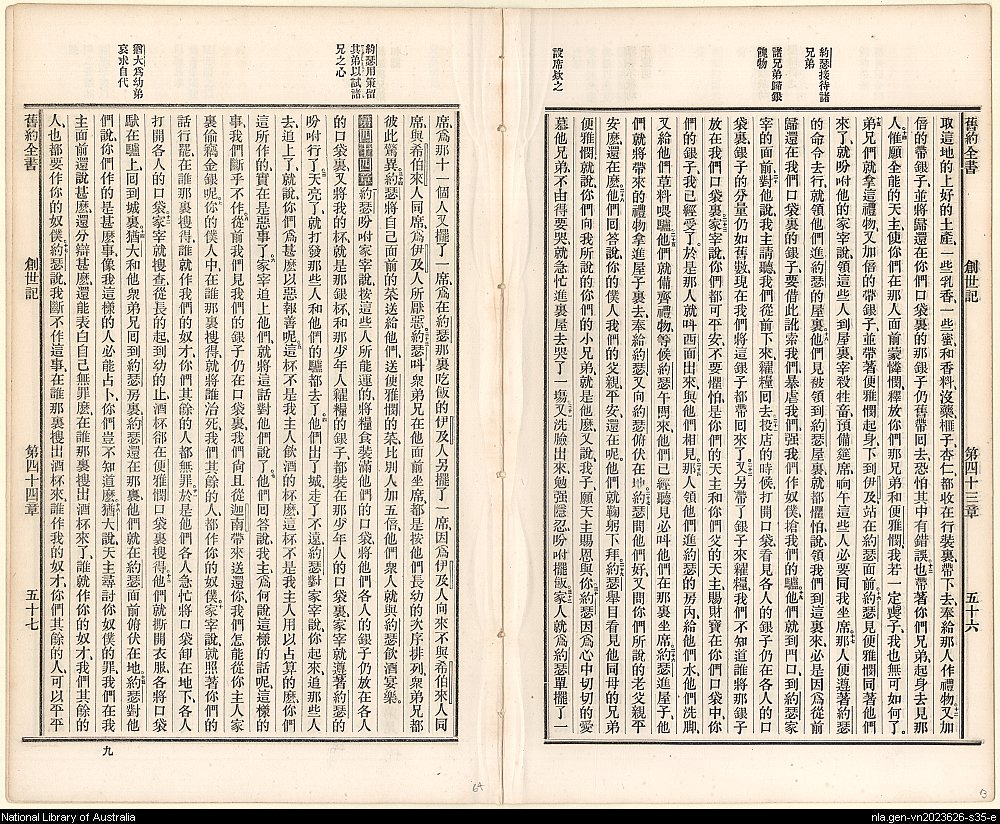 舊約全書 創世記 第四十三章 五十六
約瑟接待諸
兄弟
諸兄弟歸銀
餽物
設席欵之
取這地的上好的土產、一些乳香、一些蜜和香料、沒藥、榧子、杏仁、都收在行裝裏、帶下去、奉給那人作禮物、又加
倍的帶銀子、並將歸還在你們口袋裏的那銀子、仍舊帶回去、恐怕其中有錯誤、也帶著你們兄弟、起身去見那
人、惟願全能的天主、使你們在那人面前蒙憐憫、釋放你們那兄弟和便雅憫、我若一定喪子、我也無可如何了。
弟兄們就拿這禮物、又加倍的帶銀子、並帶著便雅憫、起身下到伊及、站在約瑟面前、約瑟見便雅憫同著他們
來了、就吩咐他的家宰說、領這些人到屋裏、宰殺牲畜、預備筵席、晌午這些人必要同我坐席、那人便遵著約瑟
的命令去行、就領他們進約瑟的屋裏、他們見被領到約瑟屋裏、就都懼怕說、領我們到這裏來、必是因爲從前
歸還在我們口袋裏的銀子、要借此訛索我們、暴虐我們、强我們作奴僕、搶我們的驢、他們就到門口、到約瑟家
宰的面前、對他說、我主請聽、我們從前下來糴糧、回去投店的時候、打開口袋、看見各人的銀子、仍在各人的口
袋裏、銀子的分量、仍如舊數、現在我們將這銀子都帶回來了、又另帶了銀子來糴糧、我們不知道誰將那銀子
放在我們口袋裏、家宰說、你們都可平安、不要懼怕、是你們的天主、和你們父的天主、賜財寶在你們口袋中、你
們的銀子、我已經受了、於是那人就叫西面出來、與他們相見、那人領他們進約瑟的房內、給他們水、他們洗脚、
又給他們草料喂驢、他們就備齊禮物、等候約瑟午間來、他們已經聽見必叫他們在那裏坐席、約瑟進屋子、他
們就將帶來的禮物、拿進屋子裏去、奉給約瑟、又向約瑟俯伏在地、約瑟問他們好、又問你們所說的老父親平
安麽、還在麽、他們回答說、你的僕人我們的父親平安、還在呢、他們就鞠躬下拜、約瑟舉目看見他同母的兄弟
便雅憫、就說、你們向我所說的你們的小兄弟、就是他麽、又說、我子、願天主賜恩與你、約瑟因爲心中切切的愛
慕他兄弟、不由得要哭、就急忙進裏屋去哭了一塲、又洗臉出來、勉强隱忍、吩咐擺飯、家人就爲約瑟單擺了一
約瑟用策留
其弟以試諸
兄之心
猶大爲幼弟
哀求自代
席、爲那十一個人又擺了一席、爲在約瑟那裏吃飯的伊及人另擺了一席、因爲伊及人向來不與希伯來人同
席、與希伯來人同席、爲伊及人所厭惡、約瑟叫衆弟兄在他面前坐席、都是按他們長幼的次序排列、衆弟兄都
彼此驚異、約瑟將自己面前的菜送給他們、送便雅憫的菜、比別人加五倍、他們衆人就與約瑟飲酒宴樂。
約瑟吩咐家宰說、按這些人所能運的、將糧食裝滿他們的口袋、將他們各人的銀子、仍放在各人
的口袋裏、又將我的杯、就是那銀杯、和那少年人糴糧的銀子、都裝在那少年人的口袋裏、家宰就遵著約瑟的
吩咐行了、天亮了、就打發那些人和他們的驢都去了、他們出了城、走了不遠、約瑟對家宰說、你起來追那些人
去、追上了、就說、你們爲甚麽以惡報善呢、這杯不是我主人飲酒的杯麽、這杯不是我主人用以占算的麽、你們
這所作的、實在是惡事了、家宰追上他們、就將這話對他們說了、他們回答說、我主爲何說這樣的話呢、這樣的
事、我們斷乎不作、從前我們見我們的銀子仍在口袋裏、我們尙且從迦南帶來送還你、我們怎能從你主人家
裏偷竊金銀呢、你的僕人中、在誰那裏搜得、就將誰治死、我們其餘的人、都作你的奴僕、家宰說、就照著你們的
話行罷、在誰那裏搜得、誰就作我們的奴才、你們其餘的人、都無罪、於是他們各人急忙將口袋卸在地下、各人
打開各人的口袋、家宰就搜查、從長的起、到幼的止、酒杯卻在便雅憫口袋裏搜得、他們就撕開衣服、各將口袋
馱在驢上、回到城裏、猶大和他衆弟兄、回到約瑟房裏、約瑟還在那裏、他們就在約瑟面前俯伏在地、約瑟對他
們說、你們作的是甚麽事、像我這樣的人、必能占卜、你們豈不知道麽、猶大說、天主尋討你奴僕的罪、我們在我
主面前還說甚麽、還分辯甚麽、還能表白自己無罪麽、在誰那裏搜出酒杯來了、誰就作你的奴才、我們其餘的
人、也都要作你的奴僕、約瑟說、我斷不作這事、在誰那裏搜出酒杯來、誰作我的奴才、你們其餘的人、可以平平
舊約全書 創世記 第四十四章 五十七
九
64
B
National Library of Australia
nla.gen-vn2023626-s35-e